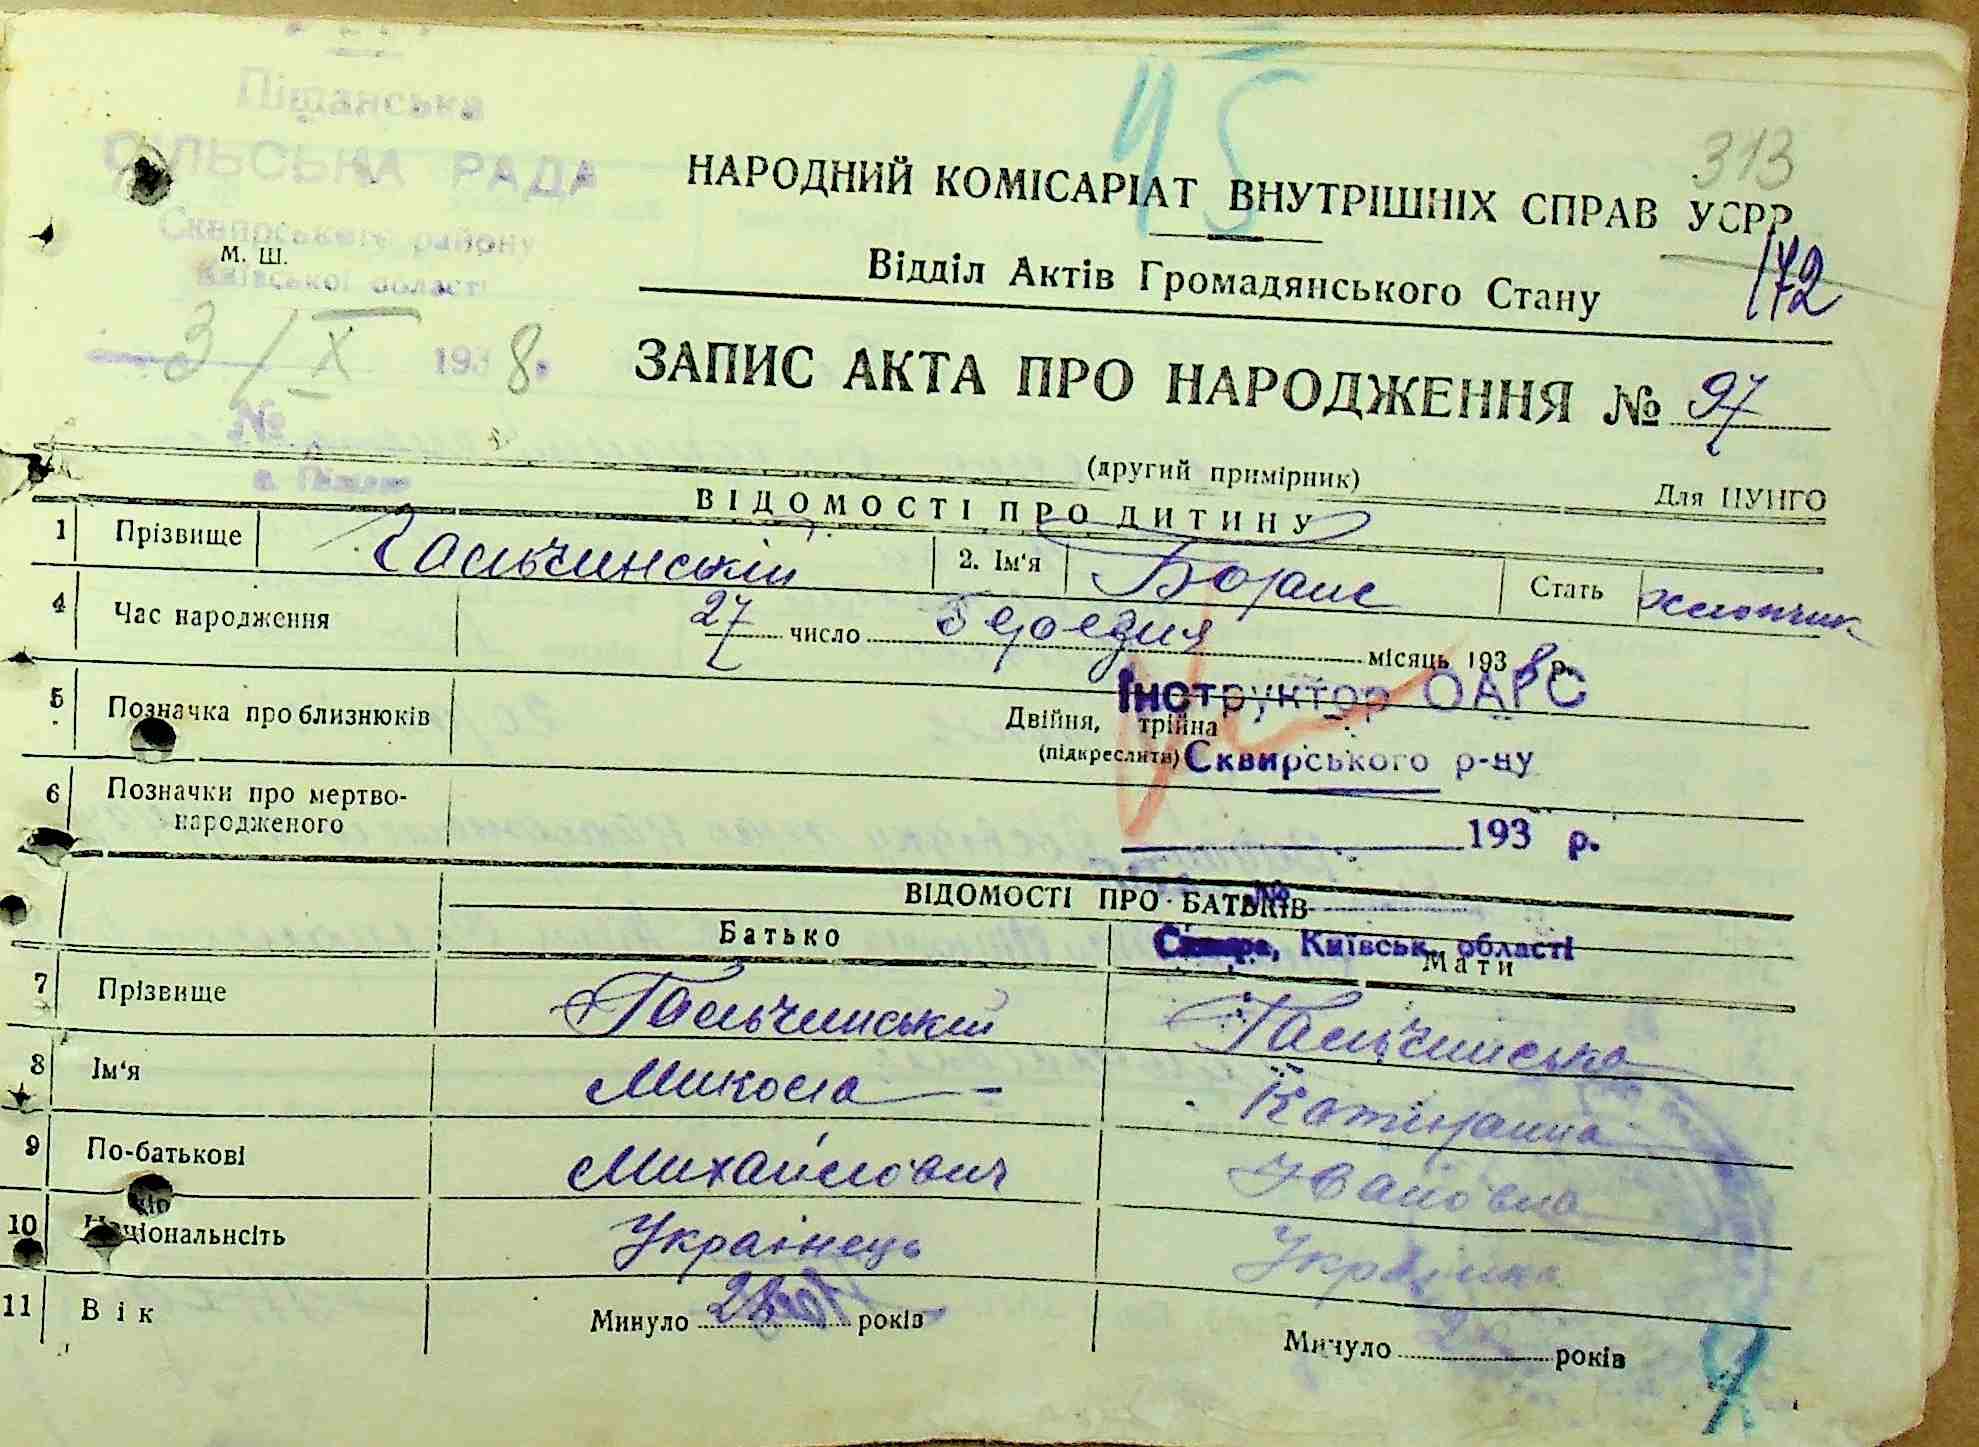 45
Піщанська
СІЛЬСЬКА РАДА
Сквирського району
Київської області
М. Ш.
3/X 1938 р.
№
с. Піщане
313
НАРОДНИЙ КОМІСАРІАТ ВНУТРІШНІХ СПРАВ УСРР
172
Відділ Актів Громадянського Стану
ЗАПИС АКТА ПРО НАРОДЖЕННЯ № 97
(другий примірник)
Для ЦУНГО
ВІДОМОСТІ ПРО ДИТИНУ
1 Прізвище Гальчинський 2. Ім'я Борис Стать хлопчик
4 Час народження 27 число Березня місяць 1938 р.
5 Позначка про близнюків Двійня, трійна
(підкреслити)
Інструктор ОАГС
Сквирського р-ну
193 р.
№
Сквира, Київськ. області
6 Позначки про мертво-
народженого
ВІДОМОСТІ ПРО БАТЬКІВ
Батько Мати
7 Прізвище Гальчинський Гальчинська
8 Ім'я Микола Катирина
9 По-батькові Михайлович Івановна
10 Національнсіть Українець Українка
11 Вік Минуло років Минуло років